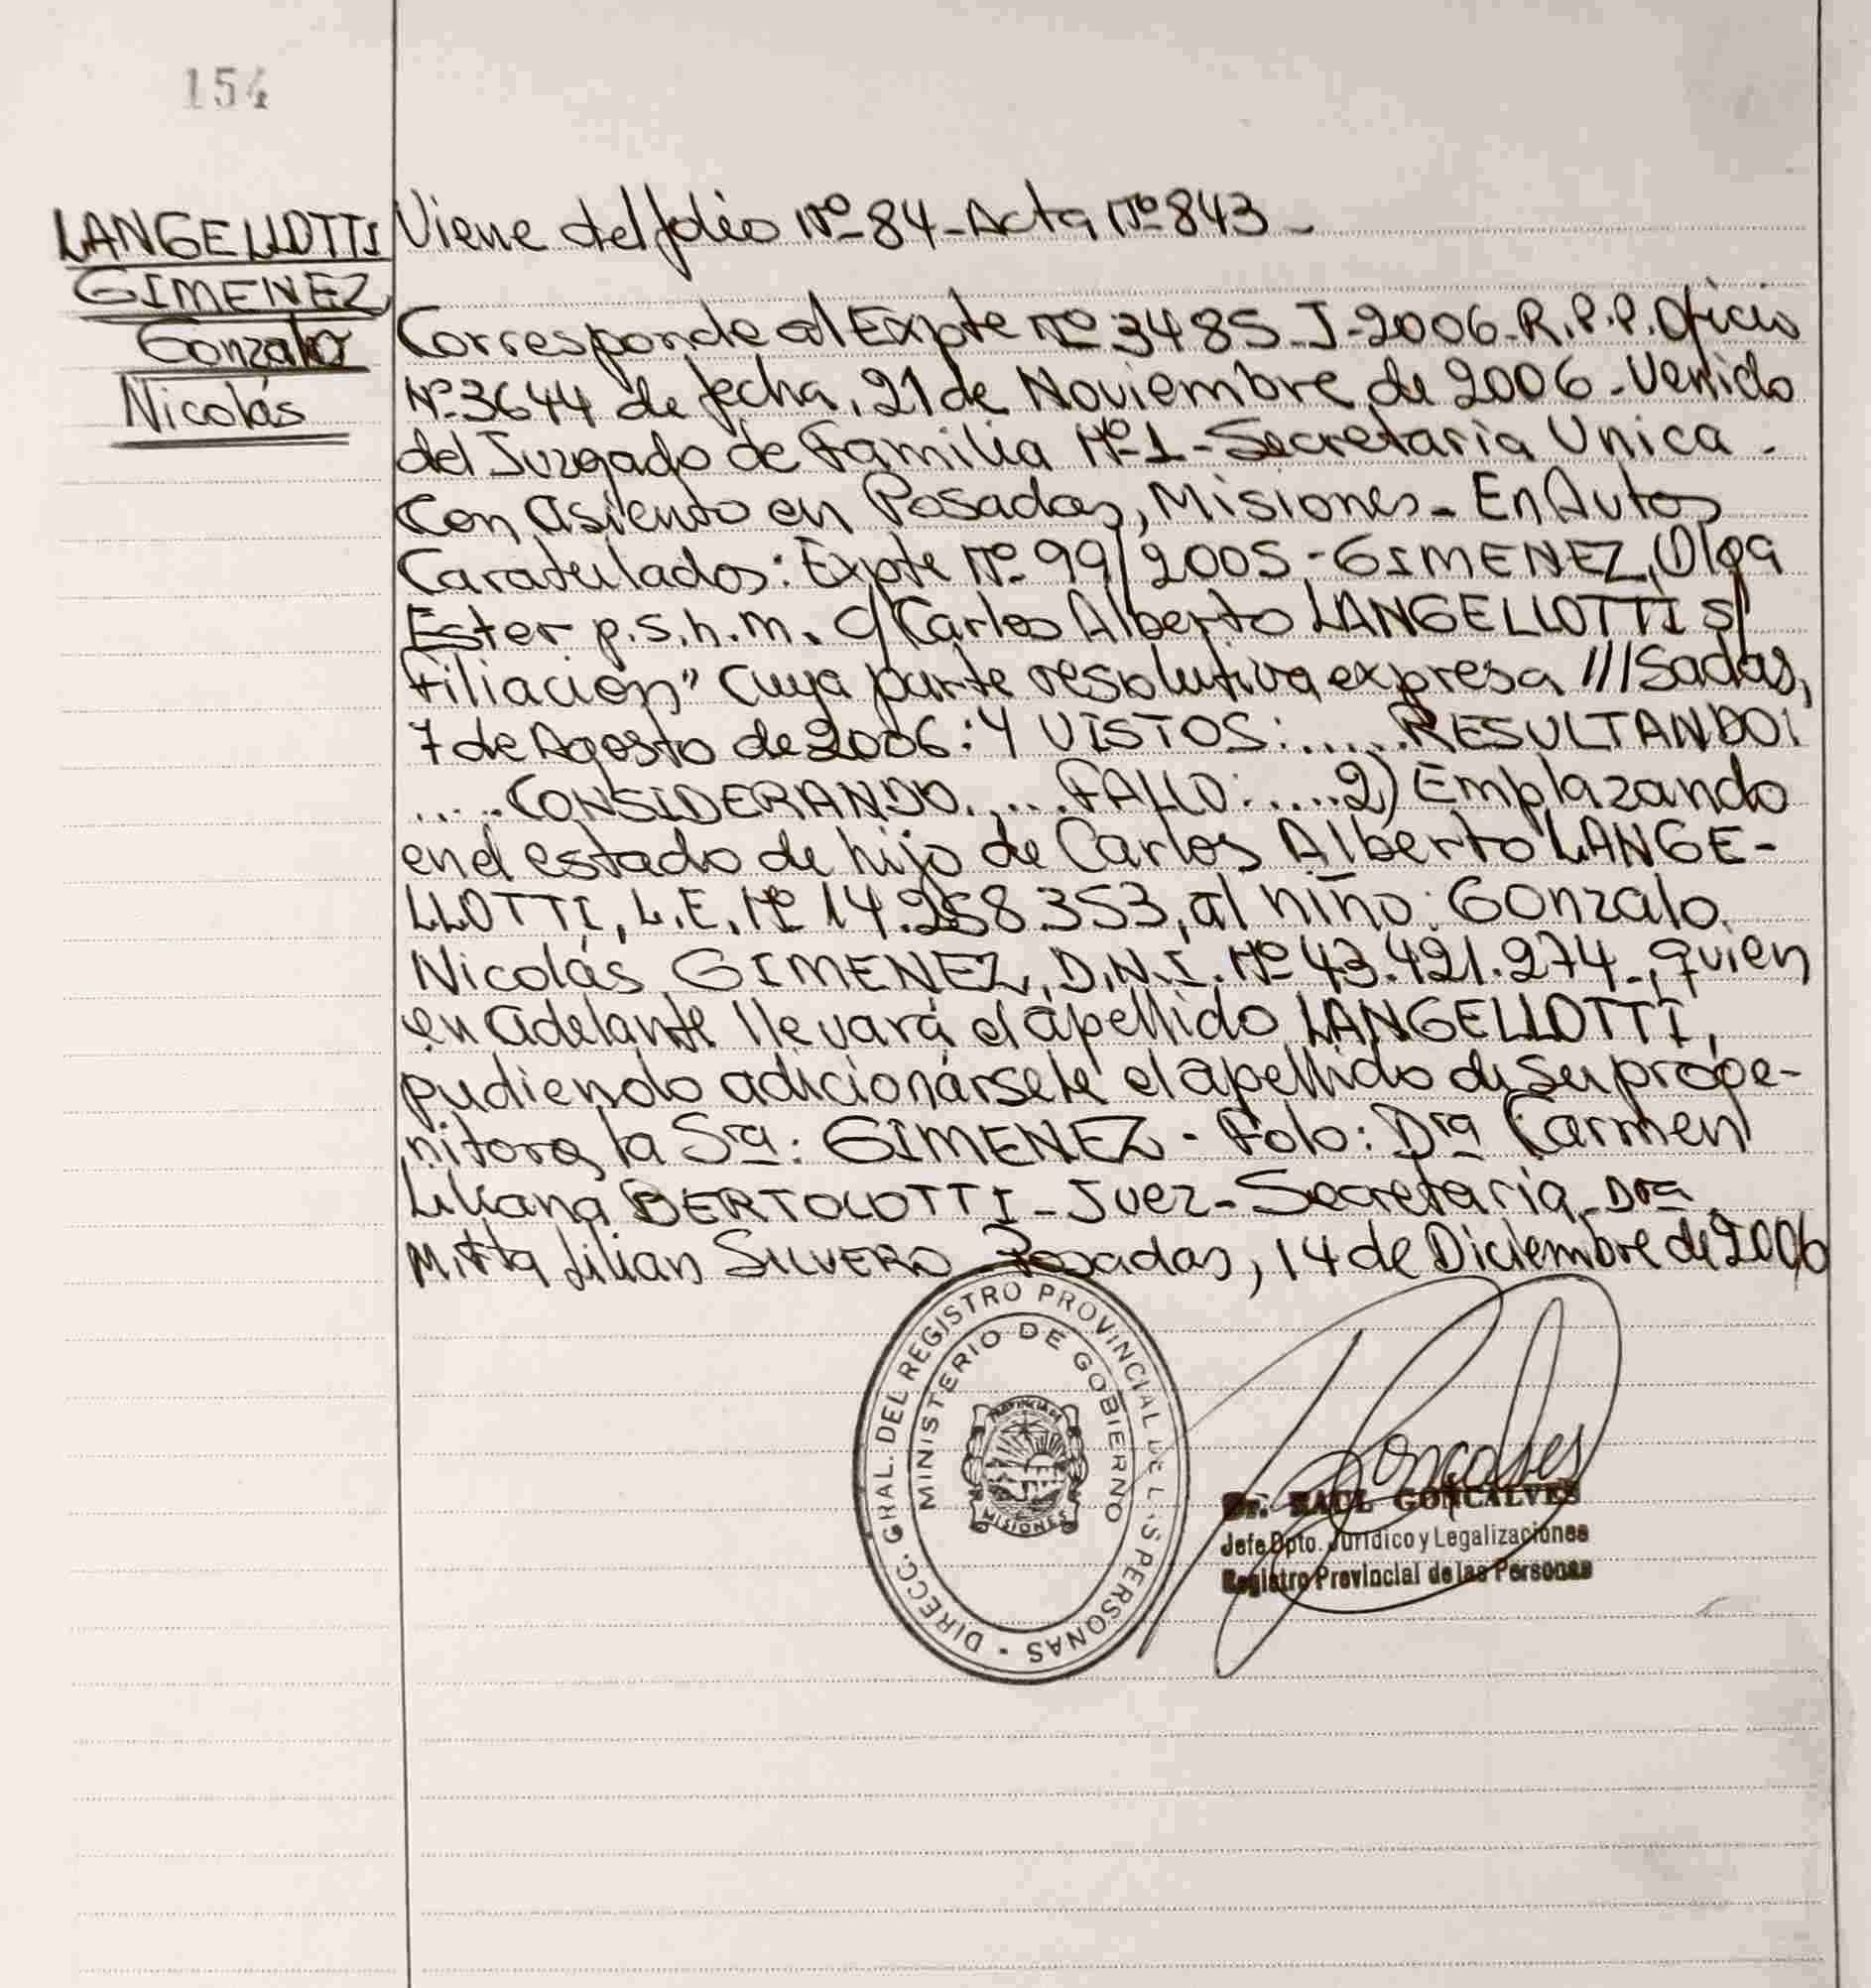 154
LANGELLOTTI
GIMENEZ
Gonzalo
Nicolás
Viene del folio Nº 84 - Acta Nº 843 -
Corresponde al Expte Nº 3485-J-2006-R.P.P. Oficio
Nº 3644 de fecha, 21 de Noviembre de 2006 - Venido
del Juzgado de Familia Nº 1 - Secretaría Unica -
Con asiento en Posadas, Misiones - En Autos
Caratulados: Expte Nº 99/2005 - GIMENEZ, Olga
Ester p.s.h.m. c/ Carlos Alberto LANGELLOTTI s/
Filiación" Cuya parte resolutiva expresa ///Sadas,
7 de Agosto de 2006: Y VISTOS: ..... RESULTANDO:
..... CONSIDERANDO ..... FALLO: ..... 2) Emplazando
en el estado de hijo de Carlos Alberto LANGE-
LLOTTI, L.E. Nº 14.258.353, al niño: Gonzalo
Nicolás GIMENEZ, D.N.I. Nº 43.421.274 -, quien
en adelante llevará el apellido LANGELLOTTI,
pudiendo adicionársele el apellido de su proge-
nitora, la Sra: GIMENEZ - Fdo: Dra Carmen
Liliana BERTOLOTTI - Juez - Secretaría - Dra
Mirta Lilian SILVERO - Posadas, 14 de Diciembre de 2006
DIRECC. GRAL. DEL REGISTRO PROVINCIAL DE L S PERSONAS -
MINISTERIO DE GOBIERNO
PROVINCIA DE
MISIONES
Goncalves
Dr. RAUL GONCALVES
Jefe Dpto. Jurídico y Legalizaciones
Registro Provincial de las Personas